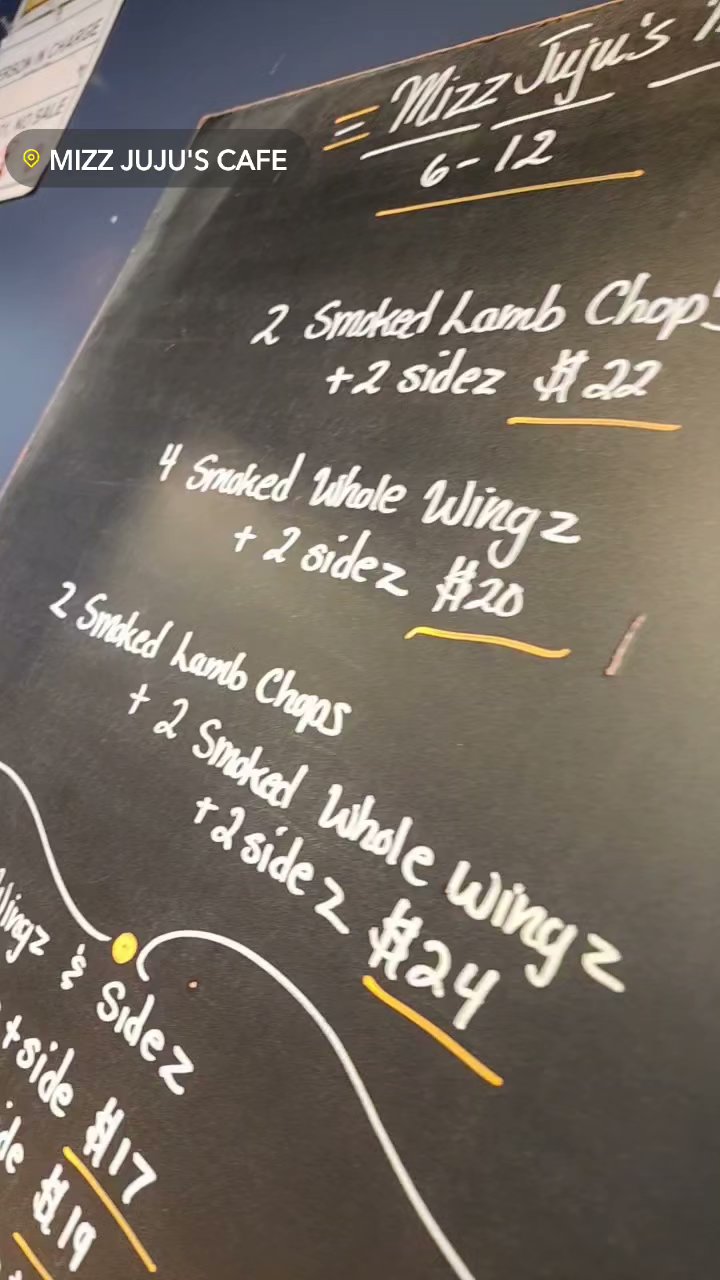 PERSON IN CHARGE
NO SALE
MIZZ JUJU'S CAFE
= Mizz Juju's
6-12
2 Smoked Lamb Chops
+2 sidez $22
4 Smoked Whole Wingz
+ 2 sidez $20
2 Smoked Lamb Chops
+ 2 Smoked Whole Wingz
+2 sidez $24
Wingz & Sidez
+side $17
$19